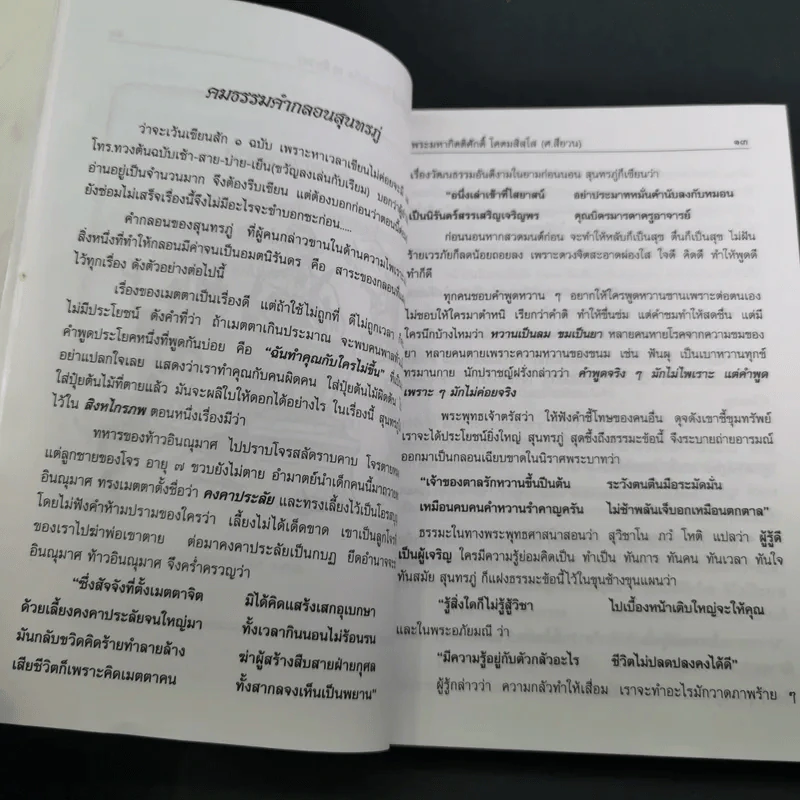 คมธรรมคำกลอนสุนทรภู่
ว่าจะเว้นเขียนสัก ๑ ฉบับ เพราะหาเวลาเขียนไม่ค่อยจะมี
โทร.ทวงต้นฉบับเช้า-สาย-บ่าย-เย็น(ขวัญลงเล่นกับเรียม) บอกว่าผู้
อ่านอยู่เป็นจำนวนมาก จึงต้องรีบเขียน แต่ต้องบอกก่อนว่าตอนนี้
ยังซ่อมไม่เสร็จเรื่องนี้จึงไม่มีอะไรจะชำบอกซะก่อน.....
คำกลอนของสุนทรภู่ ที่ผู้คนกล่าวขานในด้านความไพเราะ
สิ่งหนึ่งที่ทำให้กลอนมีค่าจนเป็นอมตนิรันดร คือ สาระของกลอนที่
ไว้ทุกเรื่อง ดังตัวอย่างต่อไปนี้
เรื่องของเมตตาเป็นเรื่องดี แต่ถ้าใช้ไม่ถูกที่ ดีไม่ถูกเวลา
ไม่มีประโยชน์ ดังคำที่ว่า ถ้าเมตตาเกินประมาณ จะพบคนพาล
คำพูดประโยคหนึ่งที่พูดกันบ่อย คือ "ฉันทำคุณกับใครไม่ขึ้น"
อย่าแปลกใจเลย แสดงว่าเราทำคุณกับคนผิดคน ใส่ปุ๋ยต้นไม้ผิดต้น
ใส่ปุ๋ยต้นไม้ที่ตายแล้ว มันจะผลิใบให้ดอกได้อย่างไร ในเรื่องนี้ สุนทรภู่
ไว้ใน สิงหไกรภพ ตอนหนึ่งเรื่องมีว่า
ทหารของท้าวอินณุมาศ ไปปราบโจรสลัดราบคาบ โจรตาย
แต่ลูกชายของโจร อายุ ๗ ขวบยังไม่ตาย อำมาตย์นำเด็กคนนี้มาถวาย
อินณุมาศ ทรงเมตตาตั้งชื่อว่า คงคาประลัย และทรงเลี้ยงไว้เป็นโอรส
โดยไม่ฟังคำห้ามปรามของใครว่า เลี้ยงไม่ได้เด็ดขาด เขาเป็นลูกโจร
ของเราไปฆ่าพ่อเขาตาย ต่อมาคงคาประลัยเป็นกบฏ ยึดอำนาจจะ
อินณุมาศ ท้าวอินณุมาศ จึงคร่ำครวญว่า
"ซึ่งสัจจังที่ตั้งเมตตาจิต มิได้คิดแสร้งเสกอุเบกษา
ด้วยเลี้ยงคงคาประลัยจนใหญ่มา ทั้งเวลากินนอนไม่ร้อนรน
มันกลับขวิดคิดร้ายทำลายล้าง ฆ่าผู้สร้างสืบสายฝ่ายกุศล
เสียชีวิตก็เพราะคิดเมตตาคน ทั้งสากลจงเห็นเป็นพยาน"
พระมหากิตติศักดิ์ โคตมสิสฺโส (ศ.สียวน) ๑๓
เรื่องวัฒนธรรมอันดีงามในยามก่อนนอน สุนทรภู่ก็เขียนว่า
"อนึ่งเล่าเข้าที่ไสยาสน์ อย่าประมาทหมั่นคำนับลงกับหมอน
เป็นนิรันดร์สรรเสริญเจริญพร คุณบิดรมารดาครูอาจารย์
ก่อนนอนหากสวดมนต์ก่อน จะทำให้หลับก็เป็นสุข ตื่นก็เป็นสุข ไม่ฝัน
ร้ายเวรภัยก็ลดน้อยถอยลง เพราะดวงจิตสะอาดผ่องใส ใจดี คิดดี ทำให้พูดดี
ทำก็ดี
ทุกคนชอบคำพูดหวาน ๆ อยากให้ใครพูดหวานขานเพราะต่อตนเอง
ไม่ชอบให้ใครมาตำหนิ เรียกว่าคำติ ทำให้ขื่นขม แต่คำชมทำให้สดชื่น แต่มี
ใครนึกบ้างไหมว่า หวานเป็นลม ขมเป็นยา หลายคนหายโรคจากความขมของ
ยา หลายคนตายเพราะความหวานของขนม เช่น ฟันผุ เป็นเบาหวานทุกข์
ทรมานกาย นักปราชญ์ฝรั่งกล่าวว่า คำพูดจริง ๆ มักไม่ไพเราะ แต่คำพูด
เพราะ ๆ มักไม่ค่อยจริง
พระพุทธเจ้าตรัสว่า ให้ฟังคำชี้โทษของคนอื่น ดุจดังเขาชี้ขุมทรัพย์
เราจะได้ประโยชน์ยิ่งใหญ่ สุนทรภู่ สุดซึ้งถึงธรรมะข้อนี้ จึงระบายถ่ายอารมณ์
ออกมาเป็นกลอนเฉียบขาดในนิราศพระบาทว่า
"เจ้าของตาลรักหวานขึ้นปีนต้น ระวังตนตีนมือระมัดมั่น
เหมือนคบคนคำหวานรำคาญครัน ไม่ช้าพลันเจ็บอกเหมือนตกตาล"
ธรรมะในทางพระพุทธศาสนาสอนว่า สุวิชาโน ภวํ โหติ แปลว่า ผู้รู้ดี
เป็นผู้เจริญ ใครมีความรู้ย่อมคิดเป็น ทำเป็น ทันการ ทันคน ทันเวลา ทันใจ
ทันสมัย สุนทรภู่ ก็แฝงธรรมะข้อนี้ไว้ในขุนช้างขุนแผนว่า
"รู้สิ่งใดก็ไม่รู้สู้วิชา ไปเบื้องหน้าเติบใหญ่จะให้คุณ
และในพระอภัยมณี ว่า
"มีความรู้อยู่กับตัวกลัวอะไร ชีวิตไม่ปลดปลงคงได้ดี"
ผู้รู้กล่าวว่า ความกลัวทำให้เสื่อม เราจะทำอะไรมักวาดภาพร้าย ๆ